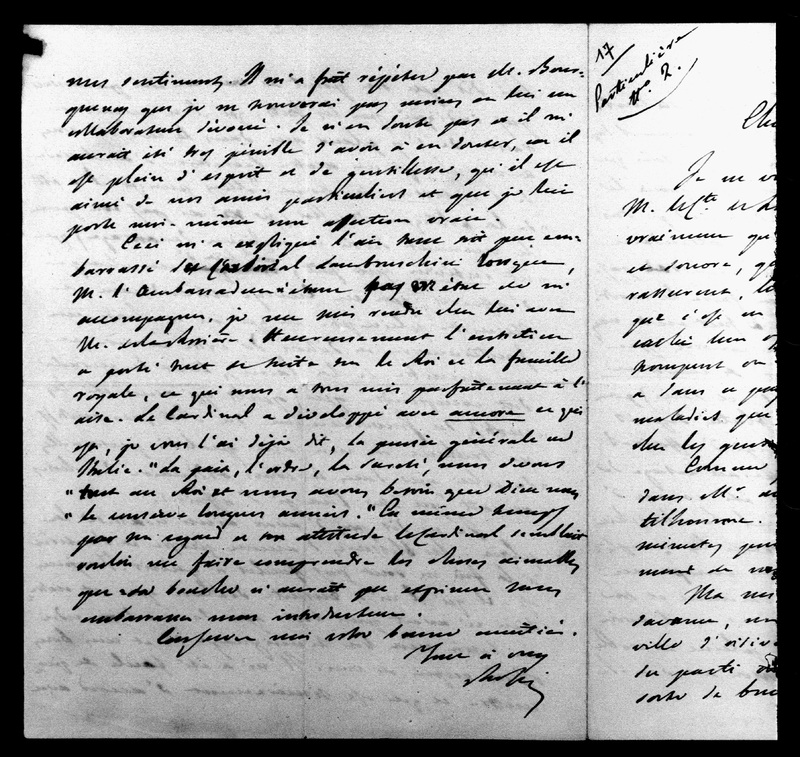 mes sentiments. Il m'a fait répéter par M. Bour-
quenay que je ne trouverai pas moins en lui un
collaborateur dévoué. Je n'en doute pas et il m'
aurait été très pénible d'avoir à en douter, car il
est plein d'esprit et de gentillesse, qu'il est
aimé de nos amis particuliers et que je lui
porte moi-même une affection vraie.
Ceci m'a expliqué l'air tant soit peu em-
barrassé du Cardinal Lambruschini lorsque,
M. l'Ambassadeur de m'
accompagner, je me suis rendu chez lui avec
M. de la Rosière. Heureusement l'entretien
a porté tout de suite sur le Roi et la famille
royale, ce qui nous a tous mis parfaitement à l'
aise. Le Cardinal a développé avec amore ce qui
est, je vous l'ai déjà dit, la pensée générale en
Italie. "La paix, l'ordre, la sureté, nous devons
"tout au Roi et nous avons besoin que Dieu nous
"le conserve longues années." En même temps
par son regard et son attitude le Cardinal semblait
vouloir me faire comprendre les choses aimables
que sa bouche n'aurait pu exprimer sans
embarrasser mon introducteur.
Conservez moi votre bonne amitié.
Tout à vous
Rossi
17
Particulière
n°. 2.
Che
Je ne v
M.
vraiment qu
et encore, q
rassurent, l
que c'est un
caché bien
trompent ou
a dans ce pay
maladies que
chez les gens
Comme
dans Mr.
tilhomme.
minutes pour
ment de
Ma
davance, un
ville d'oisiv
du parti
sorte de